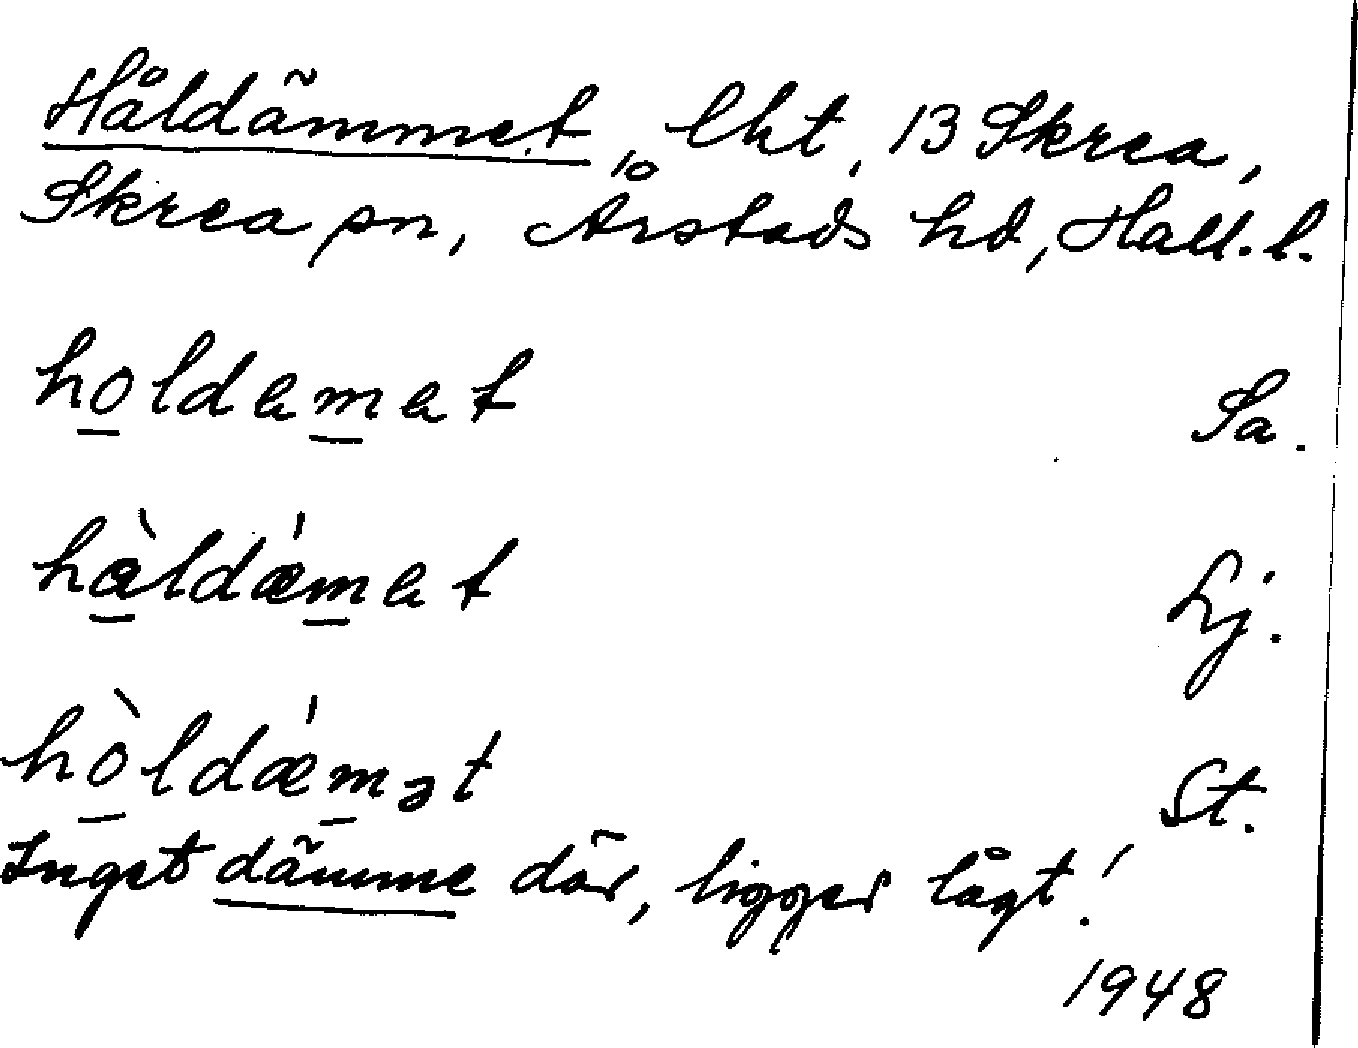 Håldämmet, lht, 13 Skrea,
10
Skrea sn, Årstads hd, Hall. l.
holdamat Sa.
hàldǽmat Lj.
hòldǽmət St.
Inget dämme där, ligger lågt!
1948